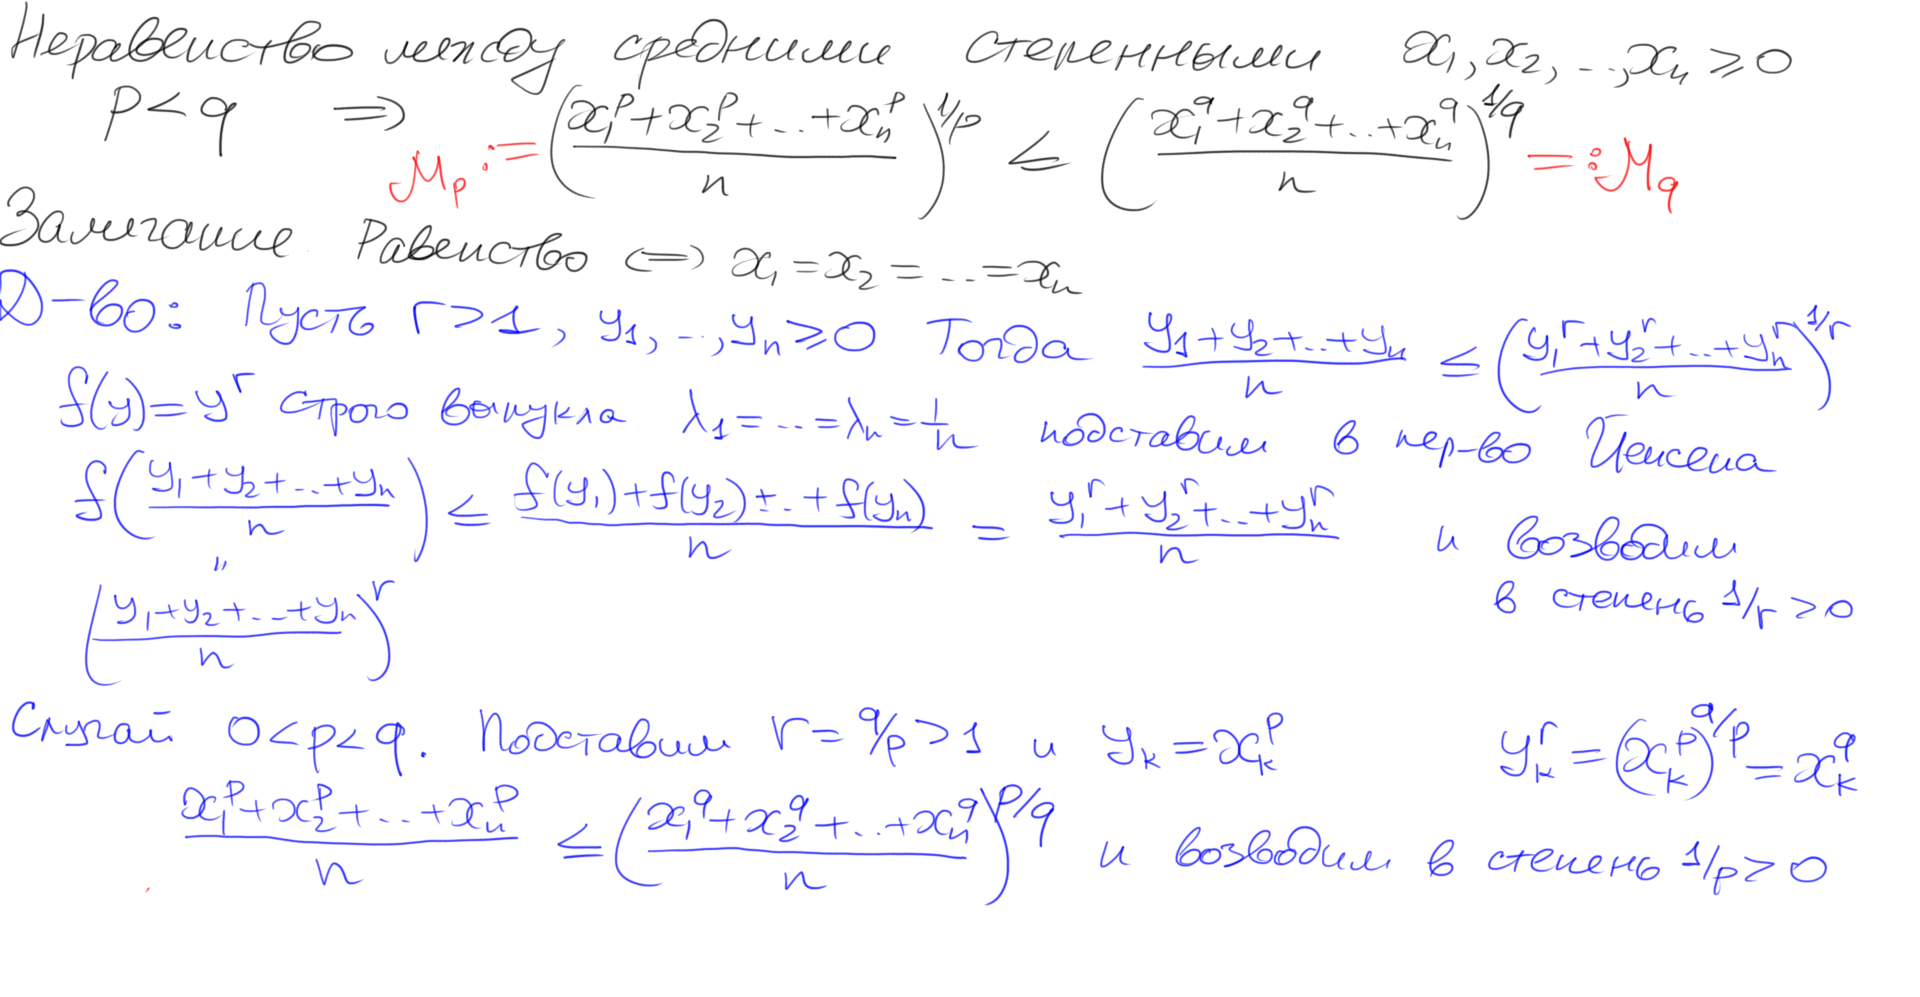 Неравенство между средними степенными x₁, x₂, ..., xₙ ≥ 0
p < q ⇒ Mₚ := ((x₁ᵖ + x₂ᵖ + ... + xₙᵖ)/n)^(1/p) ≤ ((x₁^q + x₂^q + ... + xₙ^q)/n)^(1/q) =: M_q
Замечание Равенство ⇔ x₁ = x₂ = ... = xₙ
Д-во: Пусть r > 1, y₁, ..., yₙ ≥ 0 Тогда (y₁ + y₂ + ... + yₙ)/n ≤ ((y₁ʳ + y₂ʳ + ... + yₙʳ)/n)^(1/r)
f(y) = yʳ строго выпукла λ₁ = ... = λₙ = 1/n подставим в нер-во Йенсена
f((y₁ + y₂ + ... + yₙ)/n) ≤ (f(y₁) + f(y₂) + ... + f(yₙ))/n = (y₁ʳ + y₂ʳ + ... + yₙʳ)/n и возводим
"
((y₁ + y₂ + ... + yₙ)/n)^r в степень 1/r > 0
Случай 0 < p < q. Подставим r = q/p > 1 и yₖ = xₖᵖ yₖʳ = (xₖᵖ)^(q/p) = xₖ^q
(x₁ᵖ + x₂ᵖ + ... + xₙᵖ)/n ≤ ((x₁^q + x₂^q + ... + xₙ^q)/n)^(p/q) и возводим в степень 1/p > 0